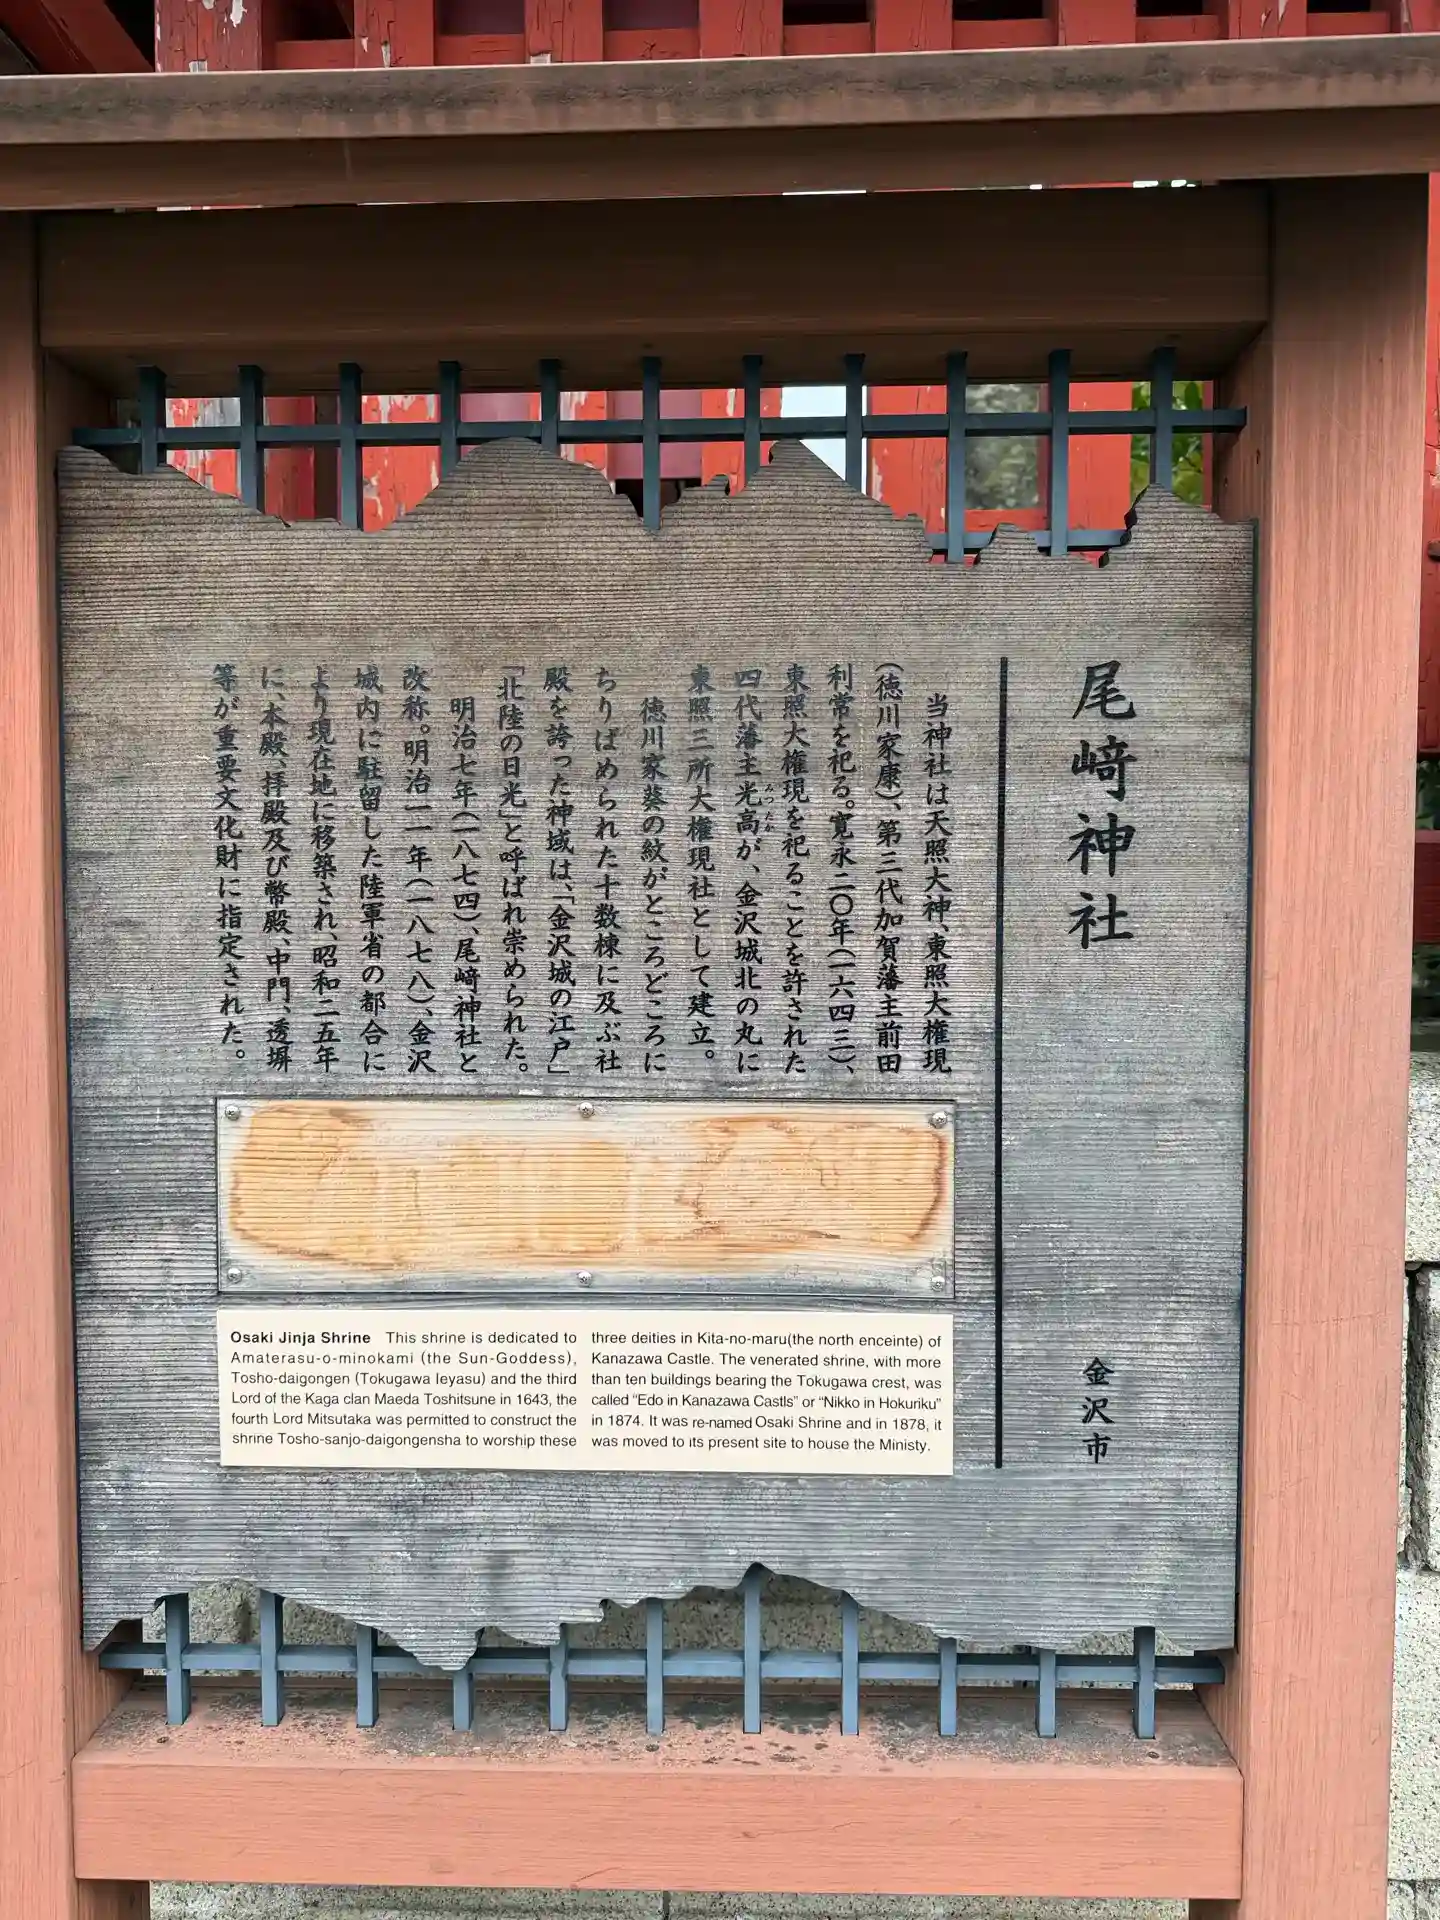 尾﨑神社
当神社は天照大神、東照大権現
(徳川家康)、第三代加賀藩主前田
利常を祀る。寛永二〇年(一六四三)、
東照大権現を祀ることを許された
四代藩主光高が、金沢城北の丸に
みつたか
東照三所大権現社として建立。
徳川家葵の紋がところどころに
ちりばめられた十数棟に及ぶ社
殿を誇った神域は、「金沢城の江戸」
「北陸の日光」と呼ばれ崇められた。
明治七年(一八七四)、尾﨑神社と
改称。明治一一年(一八七八)、金沢
城内に駐留した陸軍省の都合に
より現在地に移築され、昭和二五年
に、本殿、拝殿及び幣殿、中門、透塀
等が重要文化財に指定された。
金沢市
Osaki Jinja Shrine This shrine is dedicated to
Amaterasu-o-minokami (the Sun-Goddess),
Tosho-daigongen (Tokugawa Ieyasu) and the third
Lord of the Kaga clan Maeda Toshitsune in 1643, the
fourth Lord Mitsutaka was permitted to construct the
shrine Tosho-sanjo-daigongensha to worship these
three deities in Kita-no-maru(the north enceinte) of
Kanazawa Castle. The venerated shrine, with more
than ten buildings bearing the Tokugawa crest, was
called "Edo in Kanazawa Castls" or "Nikko in Hokuriku"
in 1874. It was re-named Osaki Shrine and in 1878, it
was moved to its present site to house the Ministy.